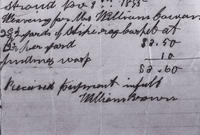 1855
Weaving for Mrs Williams Cowen
yards of stripe rag carpet at
per yard $3.50
finding warp 10
$3.60
Received payment in full
William Brown